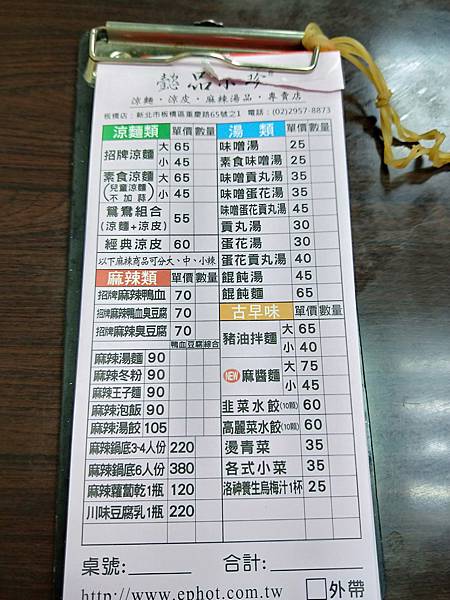 懿品小珍®
涼麵‧涼皮‧麻辣湯品‧專賣店
板橋店：新北市板橋區重慶路65號之1 電話：(02)2957-8873
涼麵類 單價 數量
招牌涼麵 大 65
小 45
素食涼麵 大 65
(兒童涼麵不加蒜) 小 45
鴛鴦組合 55
(涼麵+涼皮)
經典涼皮 60
以下麻辣商品可分大、中、小辣
麻辣類 單價 數量
招牌麻辣鴨血 70
招牌麻辣鴨血臭豆腐 70
招牌麻辣臭豆腐 70
鴨血 豆腐 綜合
麻辣湯麵 90
麻辣冬粉 90
麻辣王子麵 90
麻辣泡飯 90
麻辣湯餃 105
麻辣鍋底3-4人份 220
麻辣鍋底6人份 380
麻辣蘿蔔乾1瓶 120
川味豆腐乳1瓶 220
湯類 單價 數量
味噌湯 25
素食味噌湯 25
味噌貢丸湯 35
味噌蛋花湯 35
味噌蛋花貢丸湯 45
貢丸湯 30
蛋花湯 30
蛋花貢丸湯 40
餛飩湯 45
餛飩麵 65
古早味 單價 數量
豬油拌麵 大 65
小 40
NEW 麻醬麵 大 75
小 45
韭菜水餃(10顆) 60
高麗菜水餃(10顆) 60
燙青菜 35
各式小菜 35
洛神養生烏梅汁1杯 25
桌號:______ 合計:______
http://www.ephot.com.tw □外帶